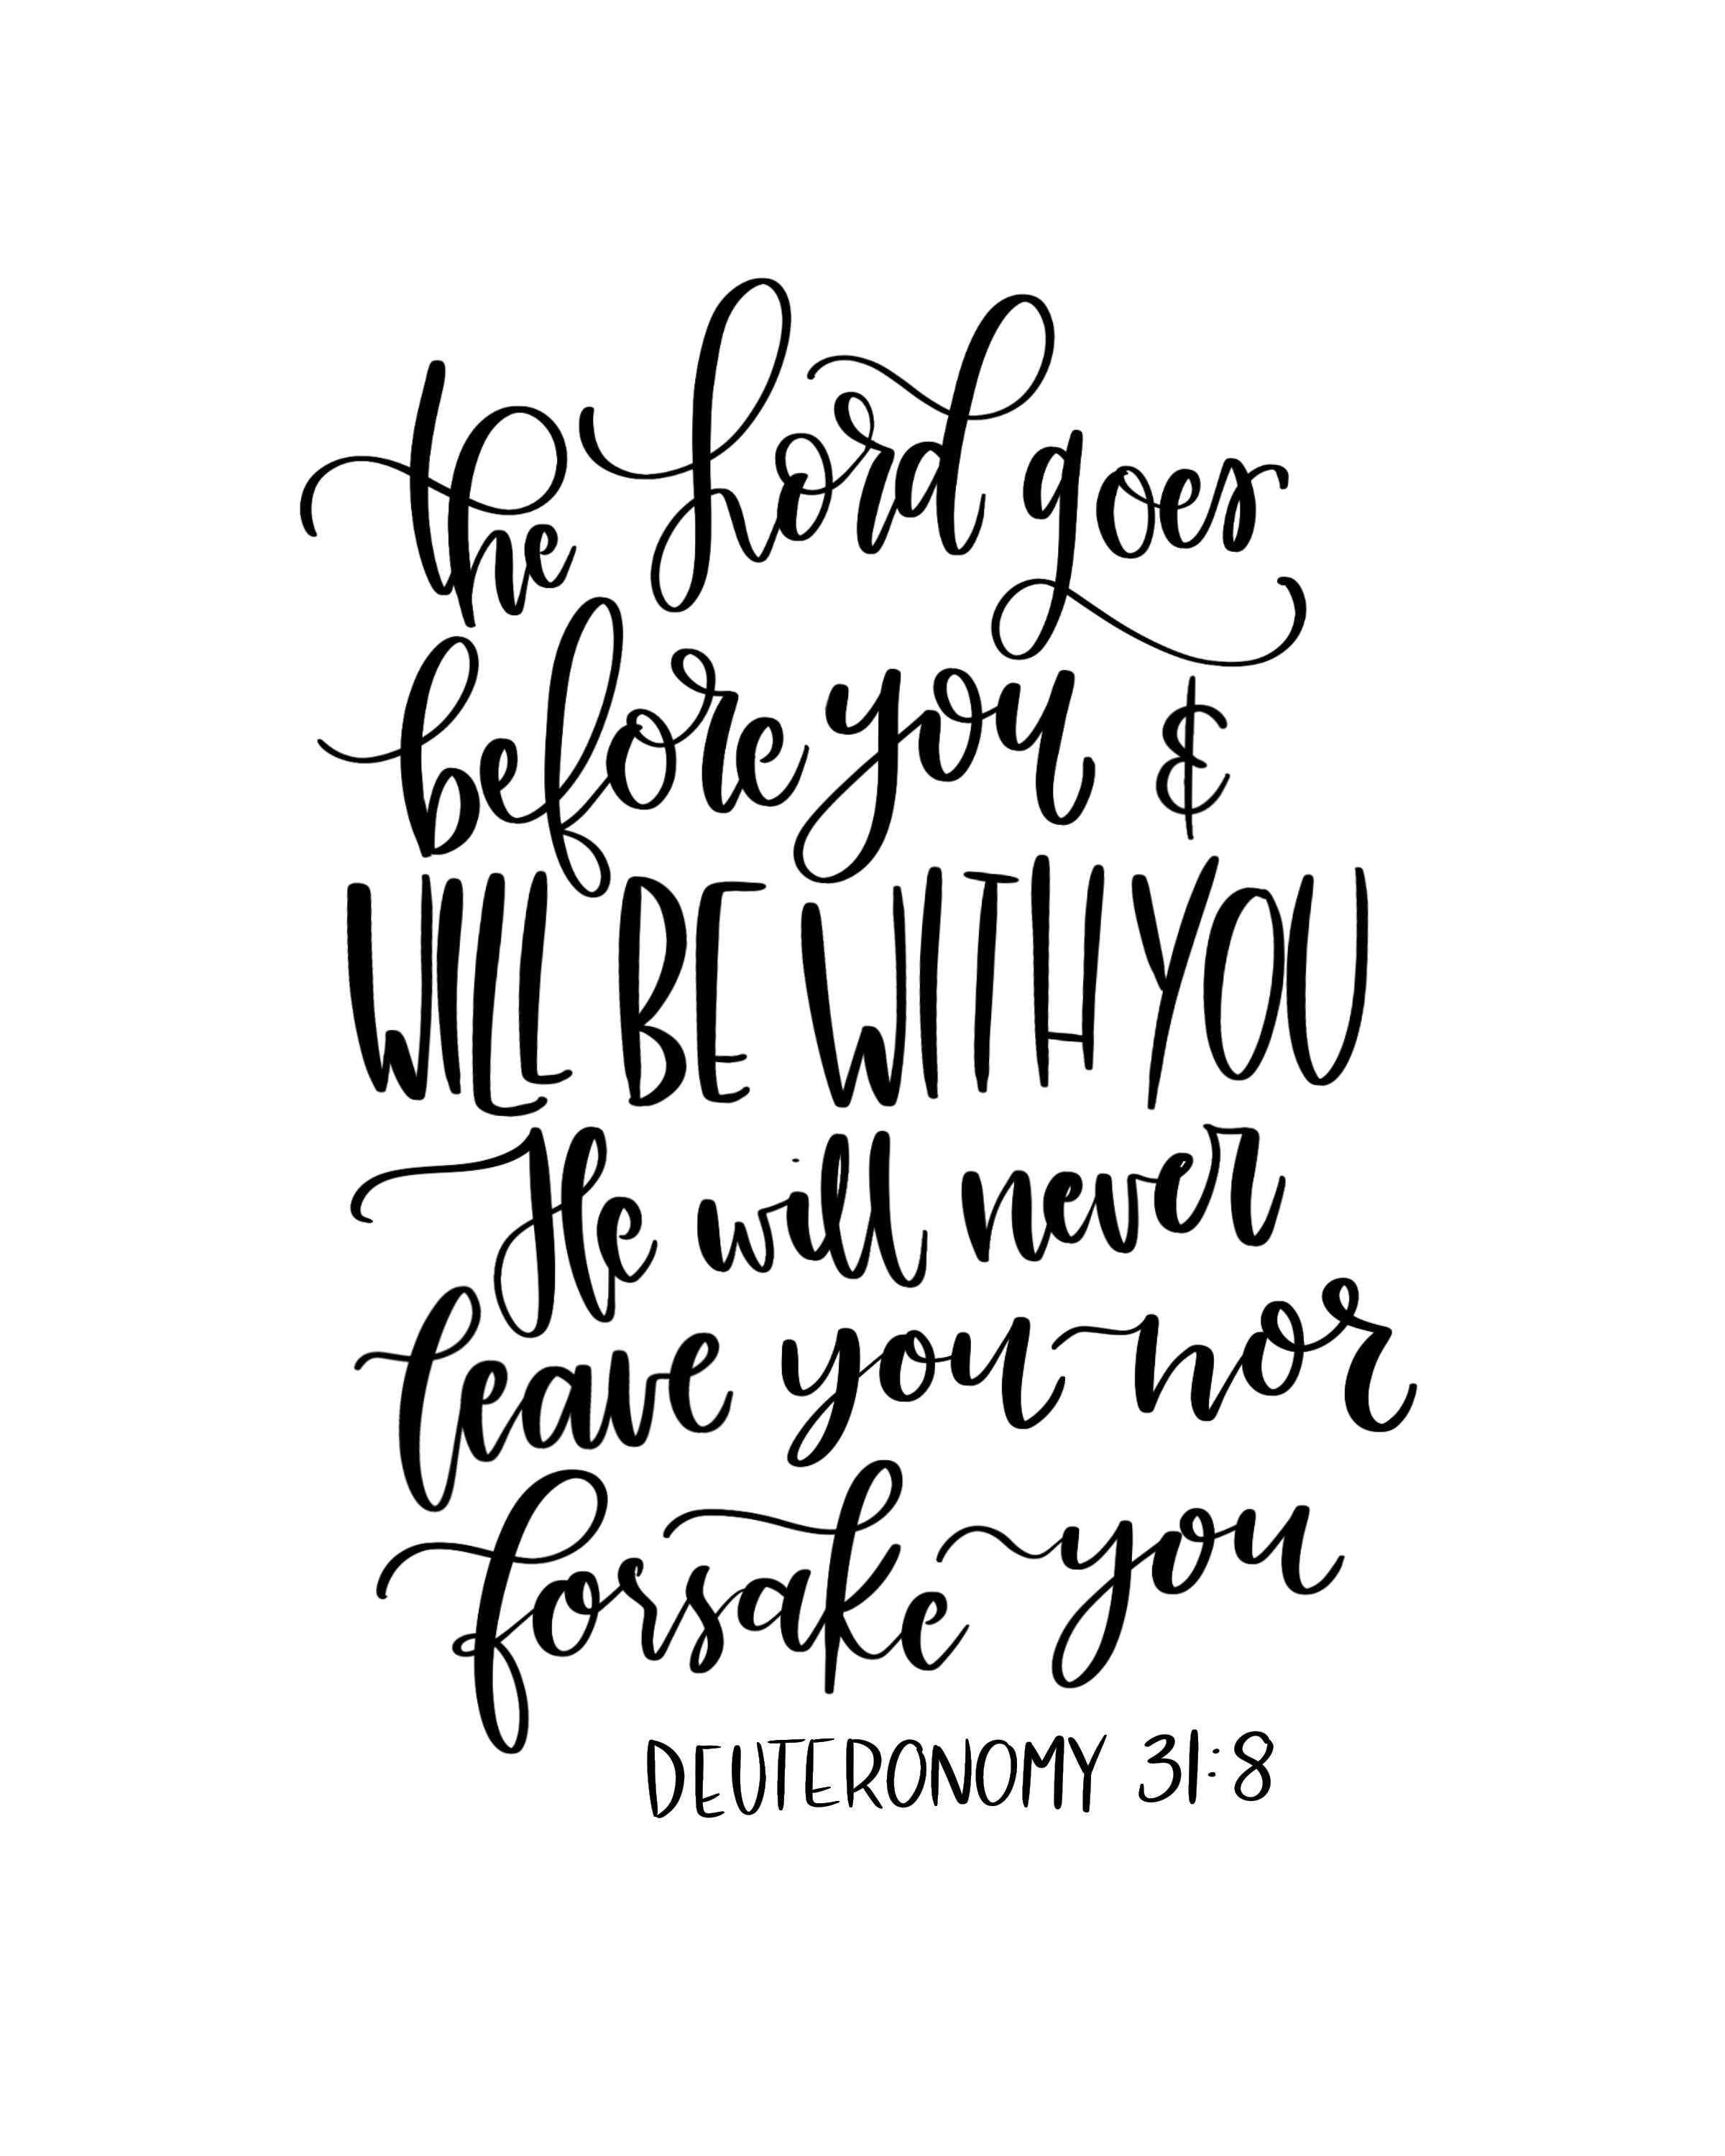 the Lord goes
before you &
WILL BE WITH YOU
He will never
leave you nor
forsake you
DEUTERONOMY 31:8